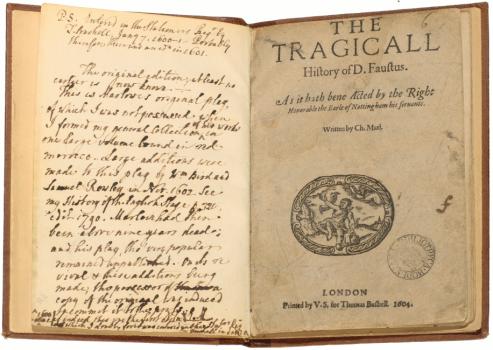 P.S. Entered in the Stationers' Reg. by
T. Bushell, Jany 7. 1600-1. Probably
therefore there was an edn. in 1601.
The original edition; at least no
earlier is now known.
This is Marlowe's original play,
of which I was not possessed when
I formed my general Collection of his works
in one large volume bound in red
morocco. Large additions were
made to this play by Wm Bird and
Samuel Rowley in Nov. 1602. See
my History of the English Stage p.
edit. 1790. Marlowe had then
been above nine years dead;
and his play, tho' very popular
remained unpublished. On its re
vival & these additions being
made, the possessor of
copy of the original was induced
to commit it to the press.
THE
TRAGICALL
History of D. Faustus.
As it hath bene Acted by the Right
Honorable the Earle of Nottingham his seruants.
Written by Ch. Marl.
LONDON
Printed by V.S. for Thomas Bushell. 1604.